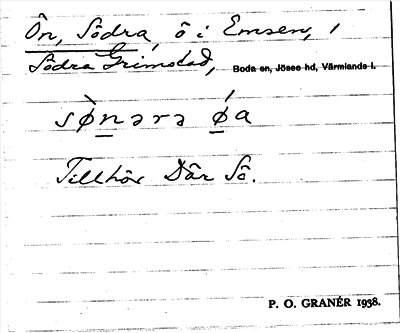 Ön, Södra, ö i Emsen, 1
Södra Grimstad, Boda sn, Jösse hd, Värmlands l.
sø̀nərə ǿa
Tillhör Där Sö.
P. O. GRANÉR 1938.